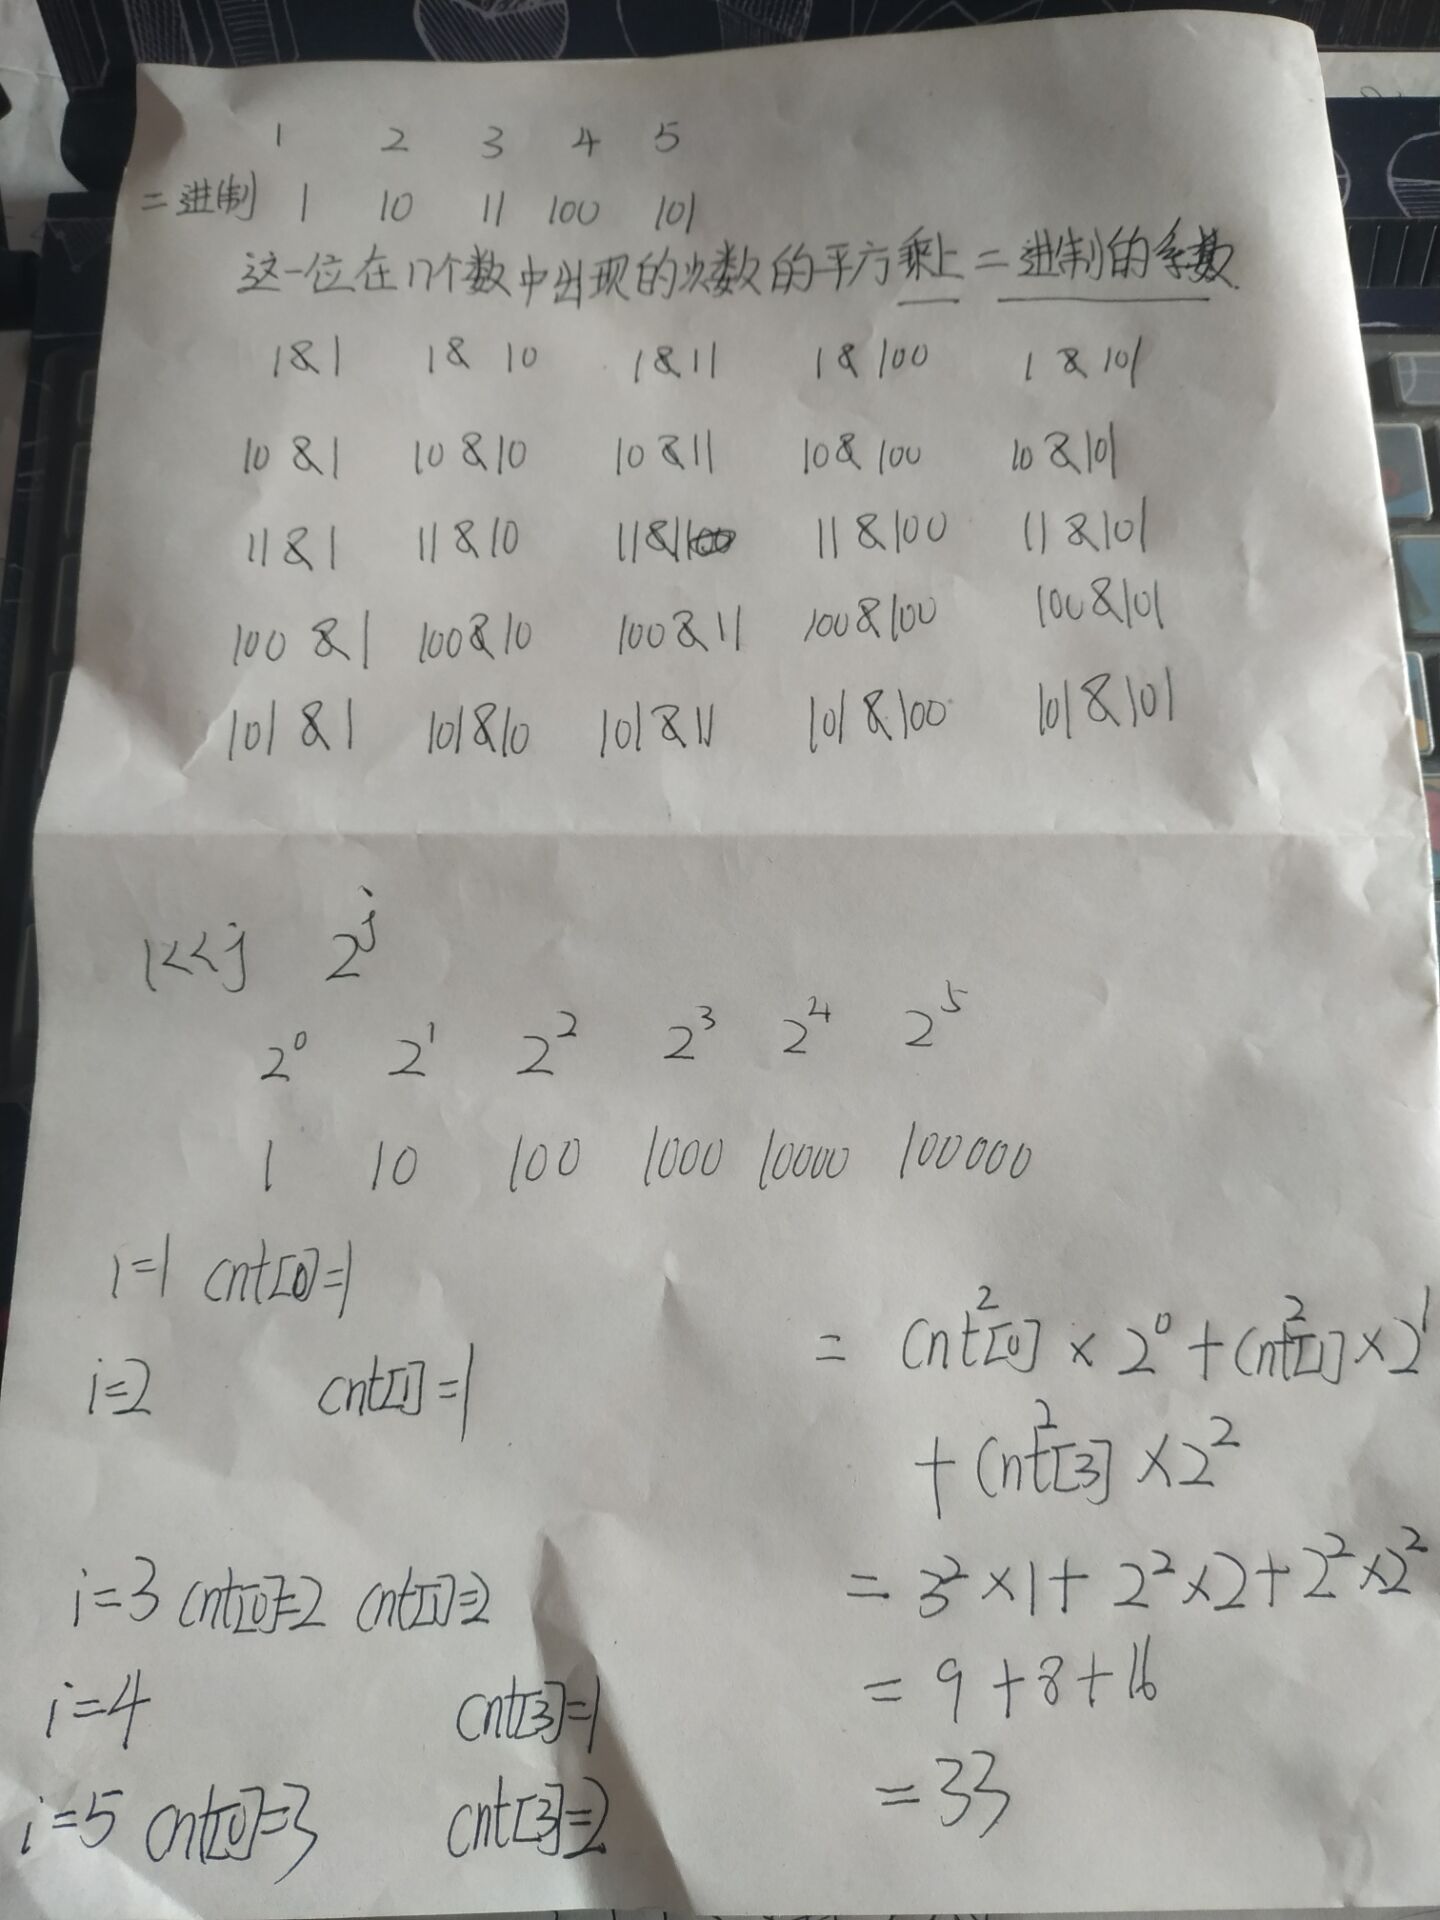 1 2 3 4 5
二进制 1 10 11 100 101
这一位在n个数中出现的次数的平方乘上二进制的系数
1&1 1&10 1&11 1&100 1&101
10&1 10&10 10&11 10&100 10&101
11&1 11&10 11&11 11&100 11&101
100&1 100&10 100&11 100&100 100&101
101&1 101&10 101&11 101&100 101&101
1<<j 2^j
2^0 2^1 2^2 2^3 2^4 2^5
1 10 100 1000 10000 100000
i=1 cnt[0]=1
i=2 cnt[1]=1
i=3 cnt[0]=2 cnt[1]=2
i=4 cnt[3]=1
i=5 cnt[0]=3 cnt[3]=2
= cnt^2[0] × 2^0 + cnt^2[1] × 2^1
+ cnt^2[3] × 2^2
= 3^2 × 1 + 2^2 × 2 + 2^2 × 2^2
= 9 + 8 + 16
= 33